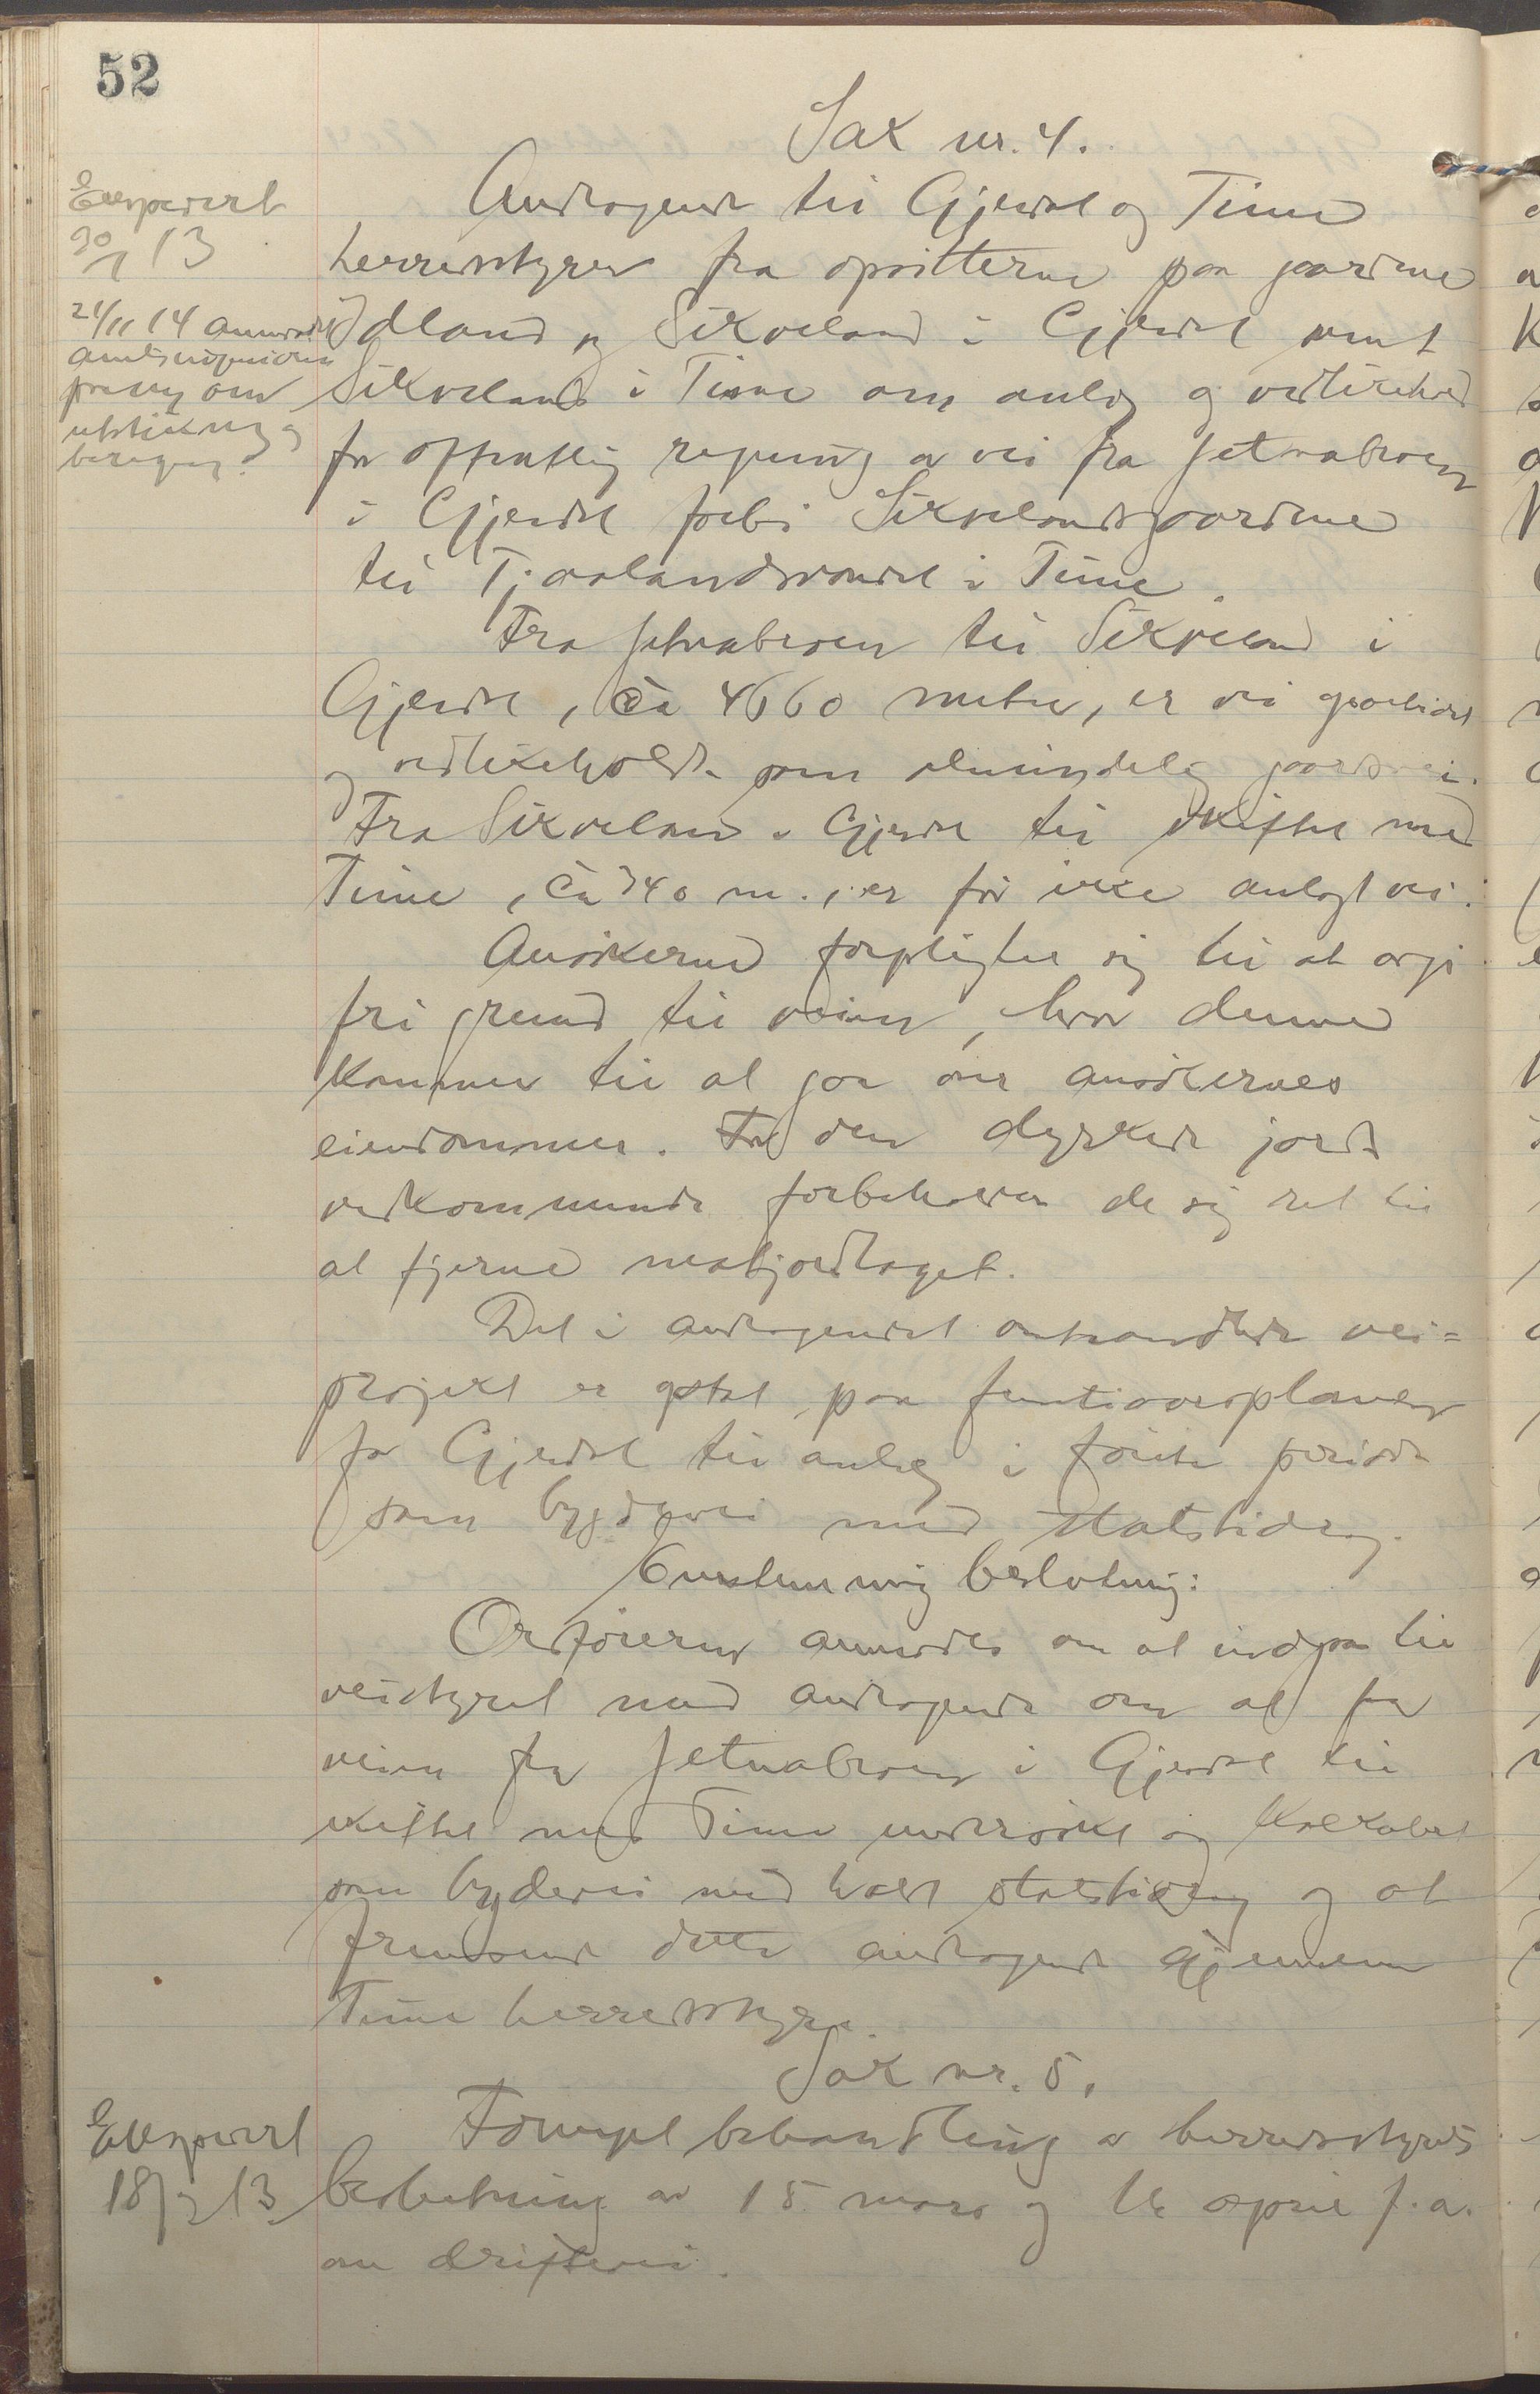 52
Sak nr. 4.
Ekspedert
30/1 13
24/11 14 anmodet
amtsingeniøren
paany om
utstikning og
beregng.
Andragende til Gjesdal og Time
herredsstyrer fra opsitterne paa gaardene
Ødland og Sikveland i Gjesdal samt
Sikveland i Time om anlæg og vedlikehold
for offentlig regning av vei fra Fetnabroen
i Gjesdal forbi Sikvelandsgaardene
til Tjaalandsvandet i Time.
Fra Fetnabroen til Sikveland i
Gjesdal, ca 4660 meter, er vei
og vedlikeholdt som almindelig gaardsvei.
Fra Sikveland i Gjesdal til skiftet med
Time, ca 740 m., er før ikke anlagt vei.
Ansøkerne forpligter sig til at avgi
fri grund til veien, hvor denne
kommer til at gaa over ansøkernes
eiendommer. For den dyrkede jord
vedkommende forbeholder de sig ret til
at fjerne matjordlaget.
Det i andragendet omhandlede vei=
projekt er opført paa femtiaarsplanen
for Gjesdal til anlæg i første periode
som bygdevei med statsbidrag.
Enstemmig beslutning:
Ordføreren anmodes om at indgaa til
veistyret med andragende om at faa
veien fra Fetnabroen i Gjesdal til
skiftet med Time undersøkt og kalkulert
som bygdevei med halvt statsbidrag og at
fremsende dette andragende gjennem
Time herredsstyre.
Sak nr. 5.
Ekspedert
18/2 13
Fornyet behandling av herredsstyrets
beslutning av 15 mars og 16 april f.a.
om driftevei.